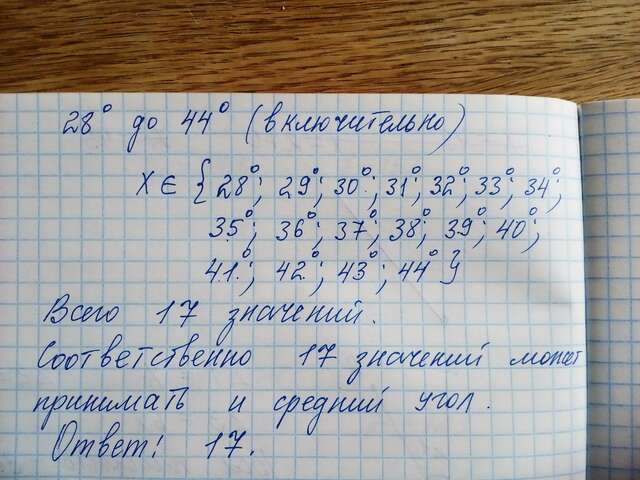 28° до 44° (включительно)
X ∈ {28°; 29°; 30°; 31°; 32°; 33°; 34°;
35°; 36°; 37°; 38°; 39°; 40°;
41°; 42°; 43°; 44°}
Всего 17 значений.
Соответственно 17 значений может
принимать и средний угол.
Ответ: 17.